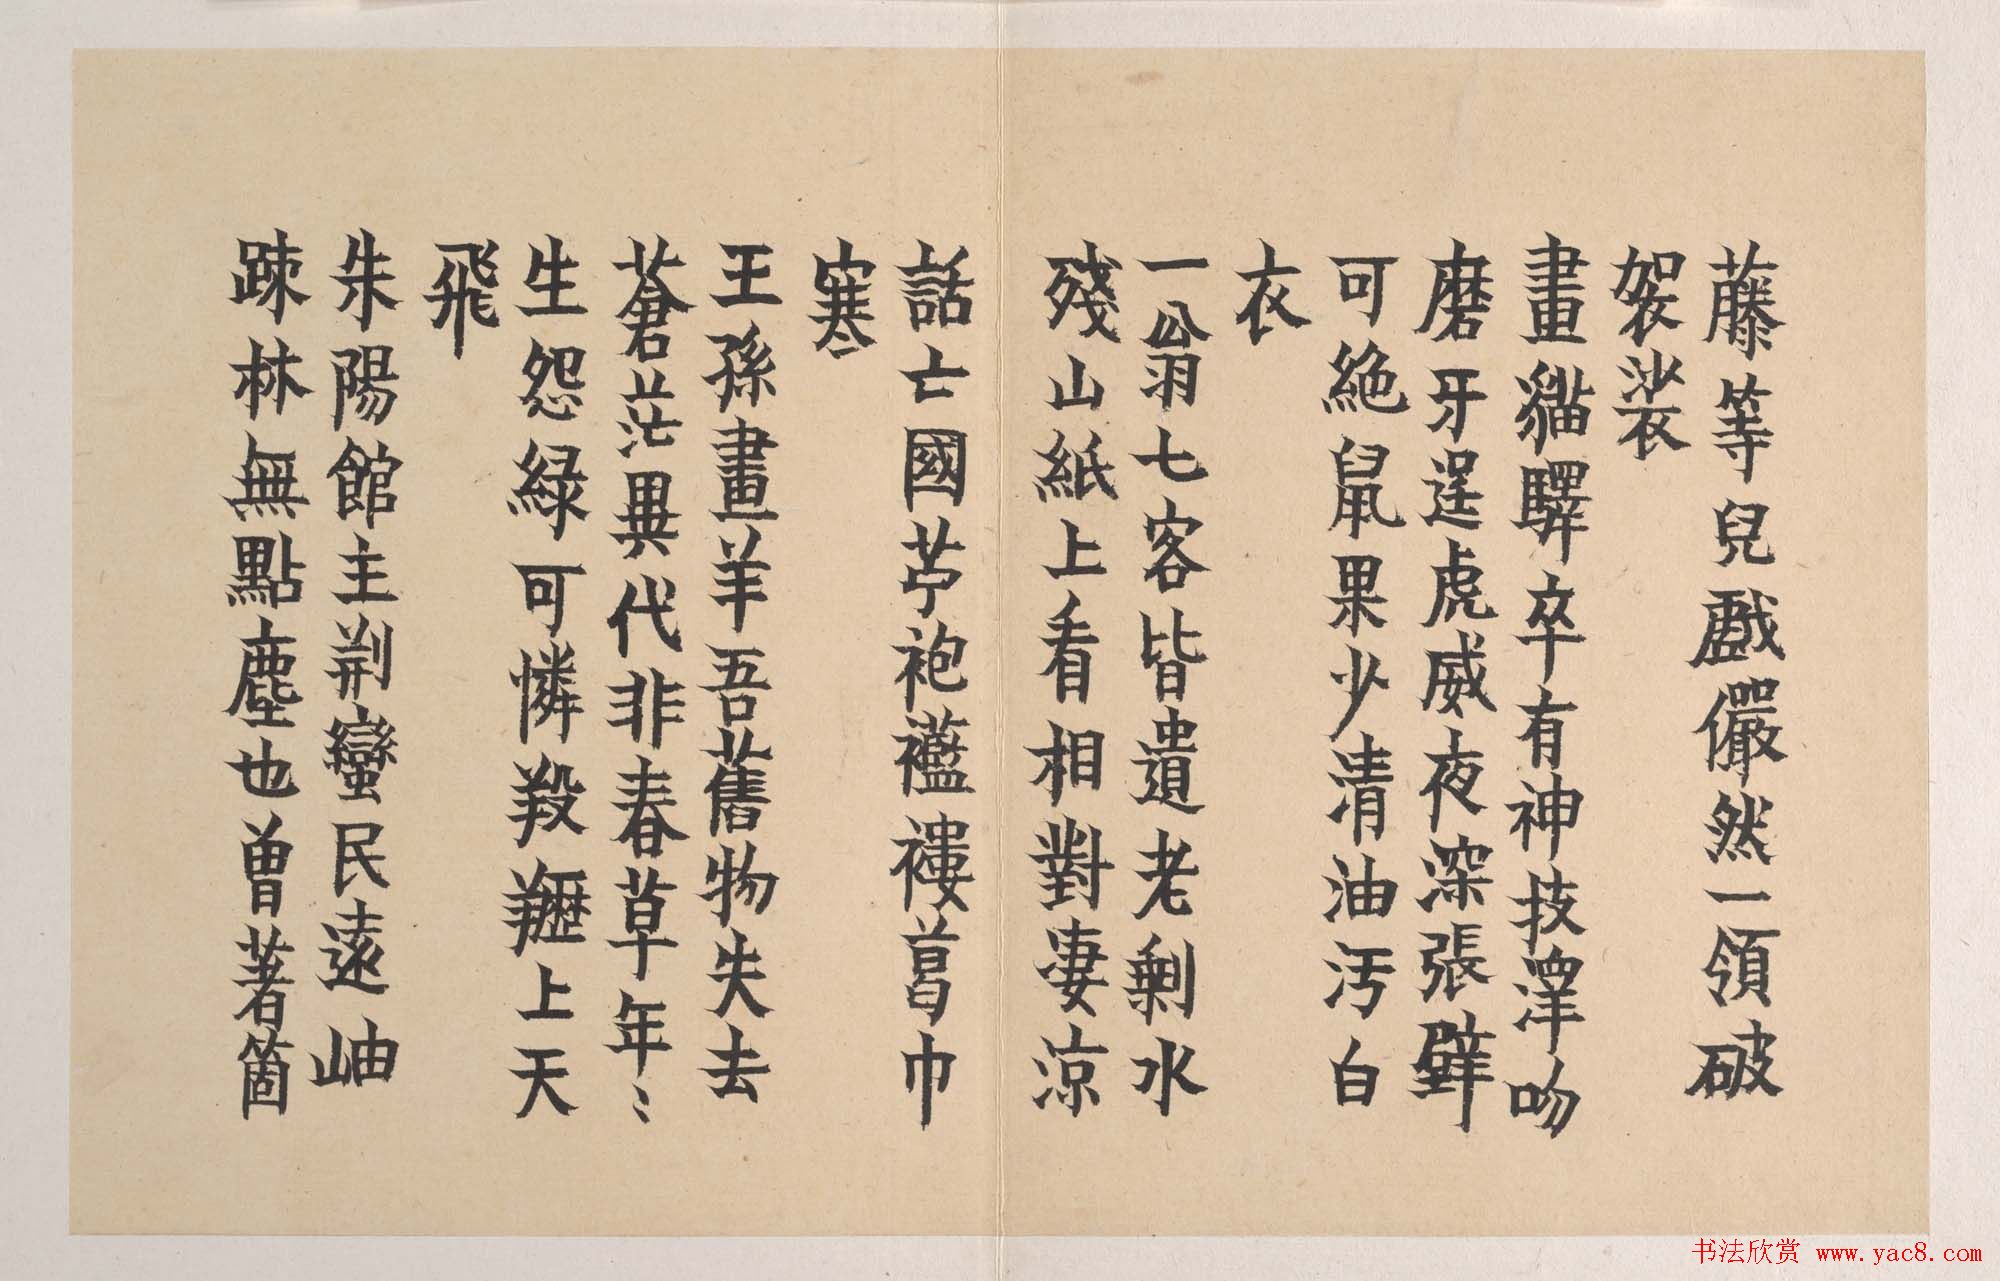 藤等兒戲儼然一領破
袈裟
畫貓驛卒有神技澤吻
磨牙逞虎威夜深張壁
可絶鼠果少清油汚白
衣
一翁七客皆遺老剩水
殘山紙上看相對淒涼
話亡國苧袍襤褸葛巾
寒
王孫畫羊吾舊物失去
蒼茫異代非春草年〻
生怨緑可憐羖䍽上天
飛
朱陽館主荆蠻民遠岫
疎林無點塵也曽著箇
书法欣赏 www.yac8.com